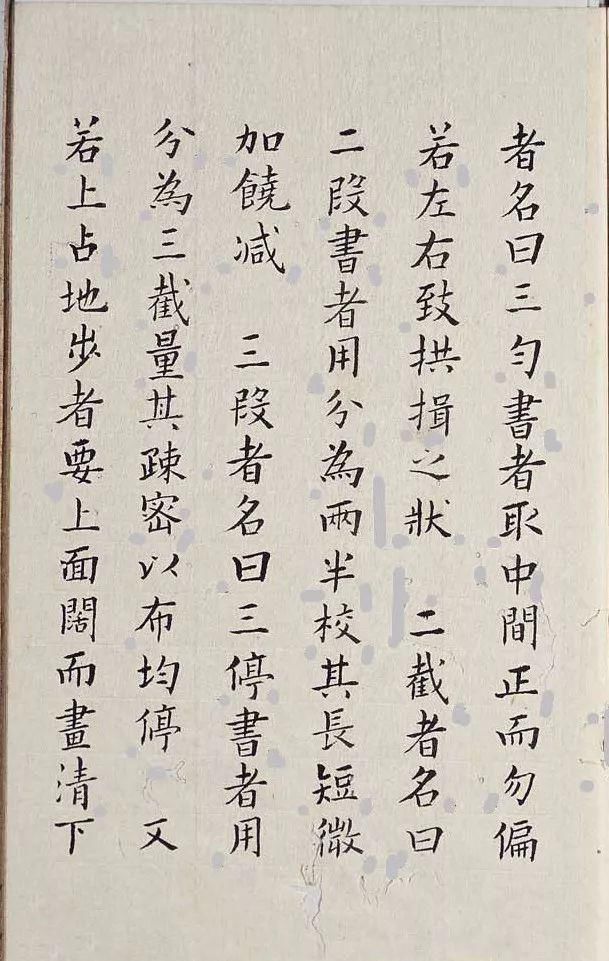 者名曰三勻書者取中間正而勿偏
若左右致拱揖之狀　二截者名曰
二段書者用分為兩半校其長短微
加饒减　三段者名曰三停書者用
分為三截量其疎密以布均停　又
若上占地步者要上面闊而畫清下